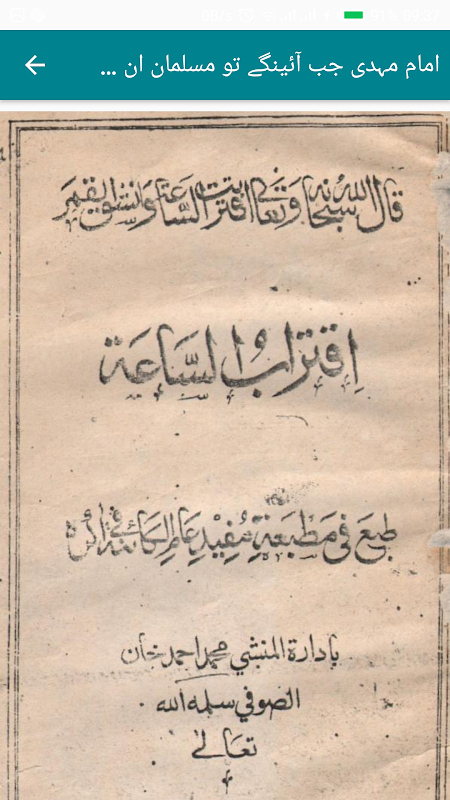 امام مہدی جب آئینگے تو مسلمان ان ...
قال الله سبحانه وتعالى اقتربت السَّاعَة وَانشق القمَر
اِقتَرابُ السَّاعَة
طبِعَ فى مَطبَعَةِ مُفِيْدِ عَام الكائنة فى اگرہ
بادارة المنشي محمد احمد خان
الصوفي سلمه الله
تعالىٰ